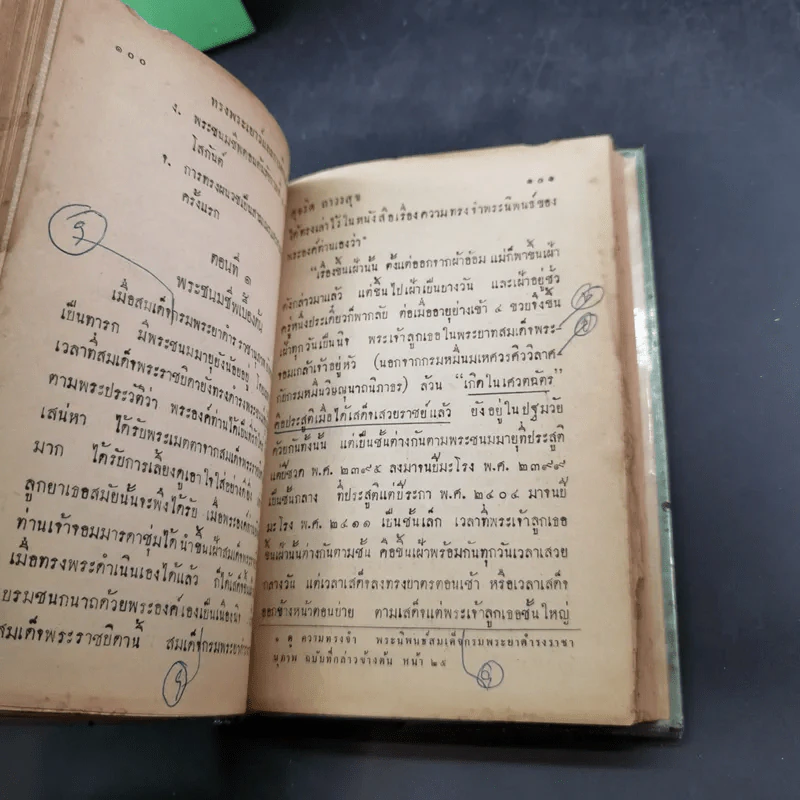 ๑๐๐
ทรงพระเยาว์
ง. พระชนมชีพตอนต้น
โสกันต์
จ. การทรงผนวชเป็นสามเณร
ครั้งแรก
ตอนที่ ๑
พระชนมชีพเบื้องต้น
เมื่อสมเด็จกรมพระยาดำรงราชานุภาพ
เป็นทารก มีพระชนมายุยังน้อยอยู่
เวลาที่สมเด็จพระราชบิดายังทรงดำรงพระชนม์
ตามพระประวัติว่า พระองค์ท่านได้เป็นที่รัก
เสน่หา ได้รับพระเมตตาจากสมเด็จพระราช
มาก ได้รับการเลี้ยงดูเอาใจใส่อย่างดียิ่ง
ลูกยาเธอสมัยนั้นจะพึงได้รับ เมื่อพระองค์
ท่านเจ้าจอมมารดาชุ่มได้นำขึ้นเฝ้าสมเด็จพระราช
เมื่อทรงพระดำเนินเองได้แล้ว ก็ได้เสด็จขึ้น
บรมชนกนาถด้วยพระองค์เองเป็นเนืองนิจ
สมเด็จพระราชบิดานี้ สมเด็จกรมพระยาดำรง
๑๐๑
สุจริต ถาวรสุข
ได้ทรงเล่าไว้ในหนังสือเรื่องความทรงจำพระนิพนธ์ของ
พระองค์ท่านเองว่า๑
"เรื่องขึ้นเฝ้านั้น ตั้งแต่ออกจากผ้าอ้อม แม่ก็พาขึ้นเฝ้า
ดังกล่าวมาแล้ว แต่ขึ้นไปเฝ้าเป็นบางวัน และเฝ้าอยู่ชั่ว
ครู่หนึ่งประเดี๋ยวก็พากลับ ต่อเมื่ออายุย่างเข้า ๔ ขวบจึงขึ้น
เฝ้าทุกวันเป็นนิจ พระเจ้าลูกเธอในพระบาทสมเด็จพระ-
จอมเกล้าเจ้าอยู่หัว (นอกจากกรมหมื่นมเหศวรศิววิลาศ
กับกรมหมื่นวิษณุนาถนิภาธร) ล้วน "เกิดในเศวตฉัตร"
คือประสูติเมื่อได้เสด็จเสวยราชย์แล้ว ยังอยู่ในปฐมวัย
ด้วยกันทั้งนั้น แต่เป็นชั้นต่างกันตามพระชนมายุที่ประสูติ
แต่ปีชวด พ.ศ. ๒๓๙๕ ลงมาจนปีมะโรง พ.ศ. ๒๓๙๙
เป็นชั้นกลาง ที่ประสูติแต่ปีระกา พ.ศ. ๒๔๐๔ มาจนปี
มะโรง พ.ศ. ๒๔๑๑ เป็นชั้นเล็ก เวลาที่พระเจ้าลูกเธอ
ขึ้นเฝ้านั้นต่างกันตามชั้น คือขึ้นเฝ้าพร้อมกันทุกวันเวลาเสวย
กลางวัน แต่เวลาเสด็จลงทรงบาตรตอนเช้า หรือเวลาเสด็จ
ออกข้างหน้าตอนบ่าย ตามเสด็จแต่พระเจ้าลูกเธอชั้นใหญ่
๑ ดู ความทรงจำ พระนิพนธ์สมเด็จกรมพระยาดำรงราชา
นุภาพ ฉบับที่กล่าวข้างต้น หน้า ๒๙